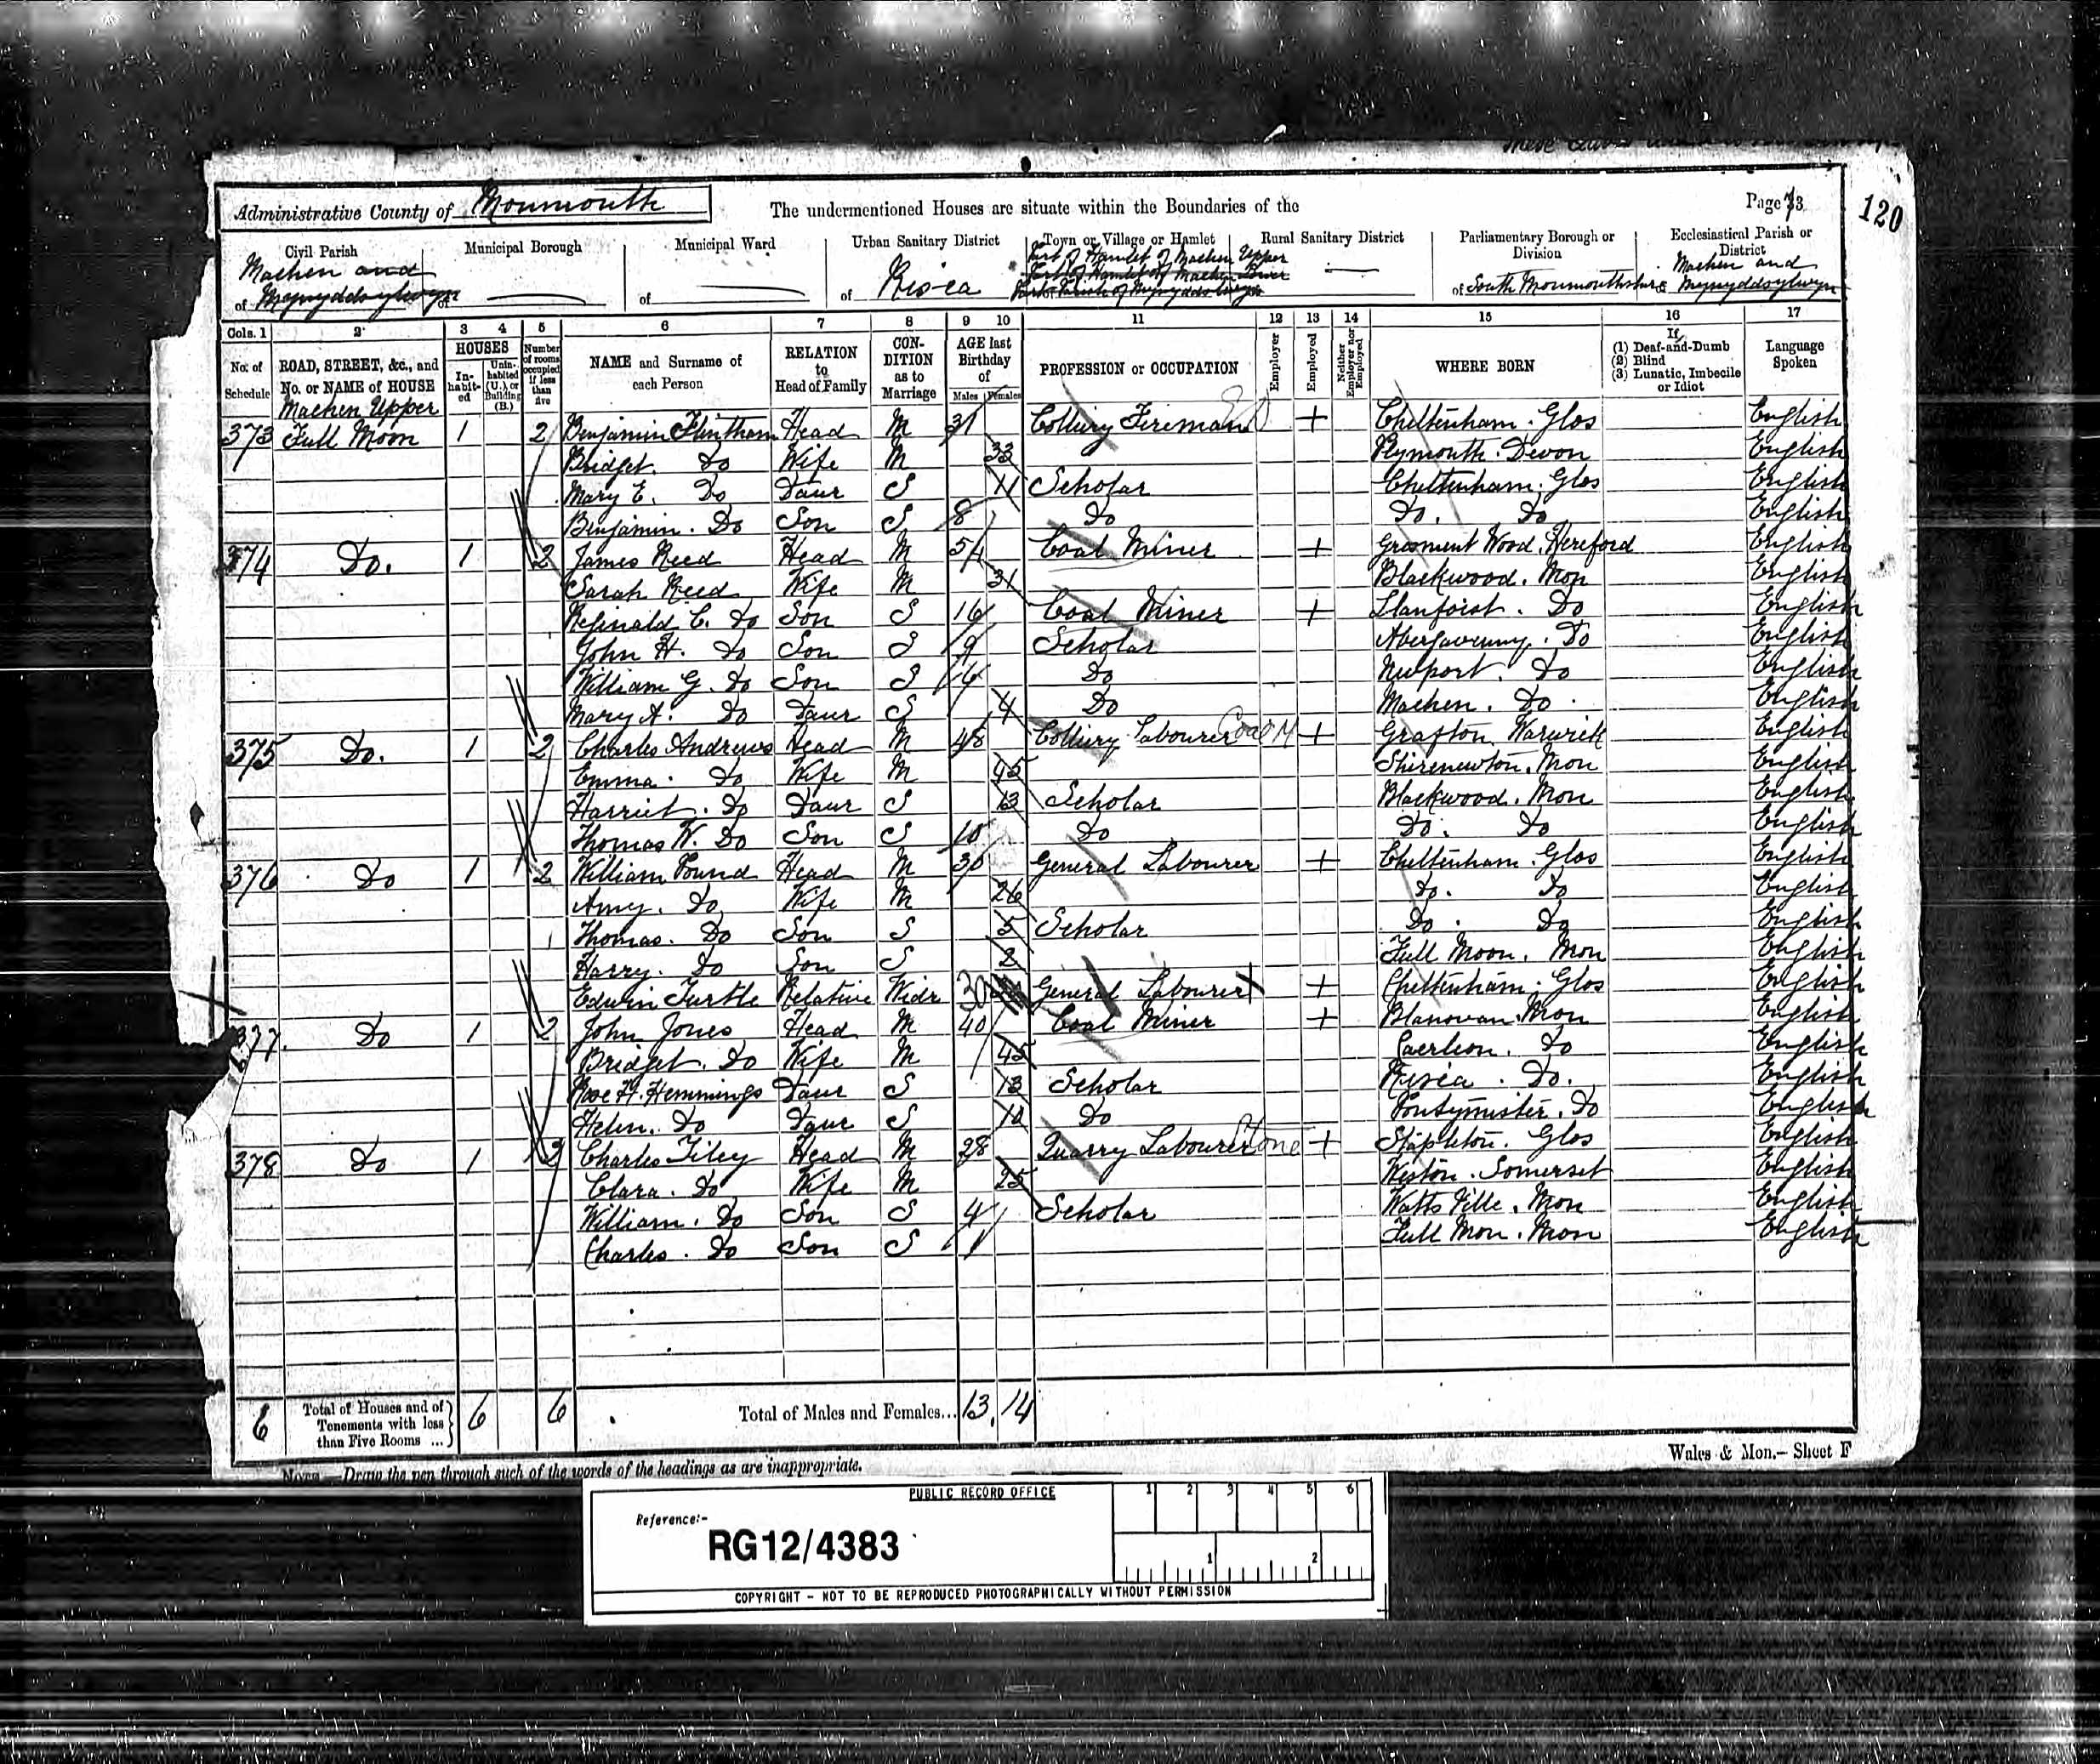 Administrative County of Monmouth The undermentioned Houses are situate within the Boundaries of the Page 73 120
Civil Parish Municipal Borough Municipal Ward Urban Sanitary District Town or Village or Hamlet Rural Sanitary District Parliamentary Borough or Division Ecclesiastical Parish or District
of Machen and Mynyddyslwyn of of of Risca Part of Hamlet of Machen Upper of South Monmouthshire Machen and Mynyddyslwyn
Part of Hamlet of Machen Lower
Part of Parish of Mynyddyslwyn
Cols. 1 2 3 4 5 6 7 8 9 10 11 12 13 14 15 16 17
No. of Schedule ROAD, STREET, &c., and No. or NAME of HOUSE HOUSES Inhabited Uninhabited (U.), or Building (B.) Number of rooms occupied if less than five NAME and Surname of each Person RELATION to Head of Family CONDITION as to Marriage AGE last Birthday of Males Females PROFESSION or OCCUPATION Employer Employed Neither Employer nor Employed WHERE BORN If (1) Deaf-and-Dumb (2) Blind (3) Lunatic, Imbecile or Idiot Language Spoken
Machen Upper
373 Full Moon 1 2 Benjamin Flintham Head M 31 Colliery Fireman + Cheltenham. Glos English
Bridget. Do Wife M 33 Plymouth. Devon English
Mary E. Do Daur S 11 Scholar Cheltenham. Glos English
Benjamin. Do Son S 8 Do Do. Do English
374 Do. 1 2 James Reed Head M 54 Coal Miner + Grosment Wood. Hereford English
Sarah Reed Wife M 31 Blackwood. Mon English
Reginald C. Do Son S 16 Coal Miner + Llanfoist. Do English
John H. Do Son S 9 Scholar Abergavenny. Do English
William G. Do Son S Do Newport. Do English
Mary A. Do Daur S 4 Do Machen. Do English
375 Do. 1 2 Charles Andrews Head M 48 Colliery Labourer Coal M + Grafton. Warwick English
Emma. Do Wife M 45 Shirenewton. Mon English
Harriet. Do Daur S 13 Scholar Blackwood. Mon English
Thomas W. Do Son S 10 Do Do. Do English
376 Do 1 2 William Pound Head M 30 General Labourer + Cheltenham. Glos English
Amy. Do Wife M 26 Do. Do English
Thomas. Do Son S 5 Scholar Do. Do English
Harry. Do Son S 2 Full Moon. Mon English
Edwin Turtle Relative Widr 30 General Labourer + Cheltenham. Glos English
377 Do 1 2 John Jones Head M 40 Coal Miner + Blanovan. Mon English
Bridget. Do Wife M 45 Caerleon. Do English
Rose H. Hemmings Daur S 13 Scholar Risca. Do. English
Helen. Do Daur S Do Pontymister. Do English
378 Do 1 2 Charles Tiley Head M 28 Quarry Labourer Stone + Stapleton. Glos English
Clara. Do Wife M 25 Weston. Somerset English
William. Do Son S 4 Scholar Watts Ville. Mon English
Charles. Do Son S 1 Full Mon. Mon English
6 Total of Houses and of Tenements with less than Five Rooms ... 6 6 Total of Males and Females... 13 14
NOTE.—Draw the pen through such of the words of the headings as are inappropriate. Wales & Mon.— Sheet F
PUBLIC RECORD OFFICE 1 2 3 4 5 6
Reference:-
RG12/4383 1 2
COPYRIGHT - NOT TO BE REPRODUCED PHOTOGRAPHICALLY WITHOUT PERMISSION